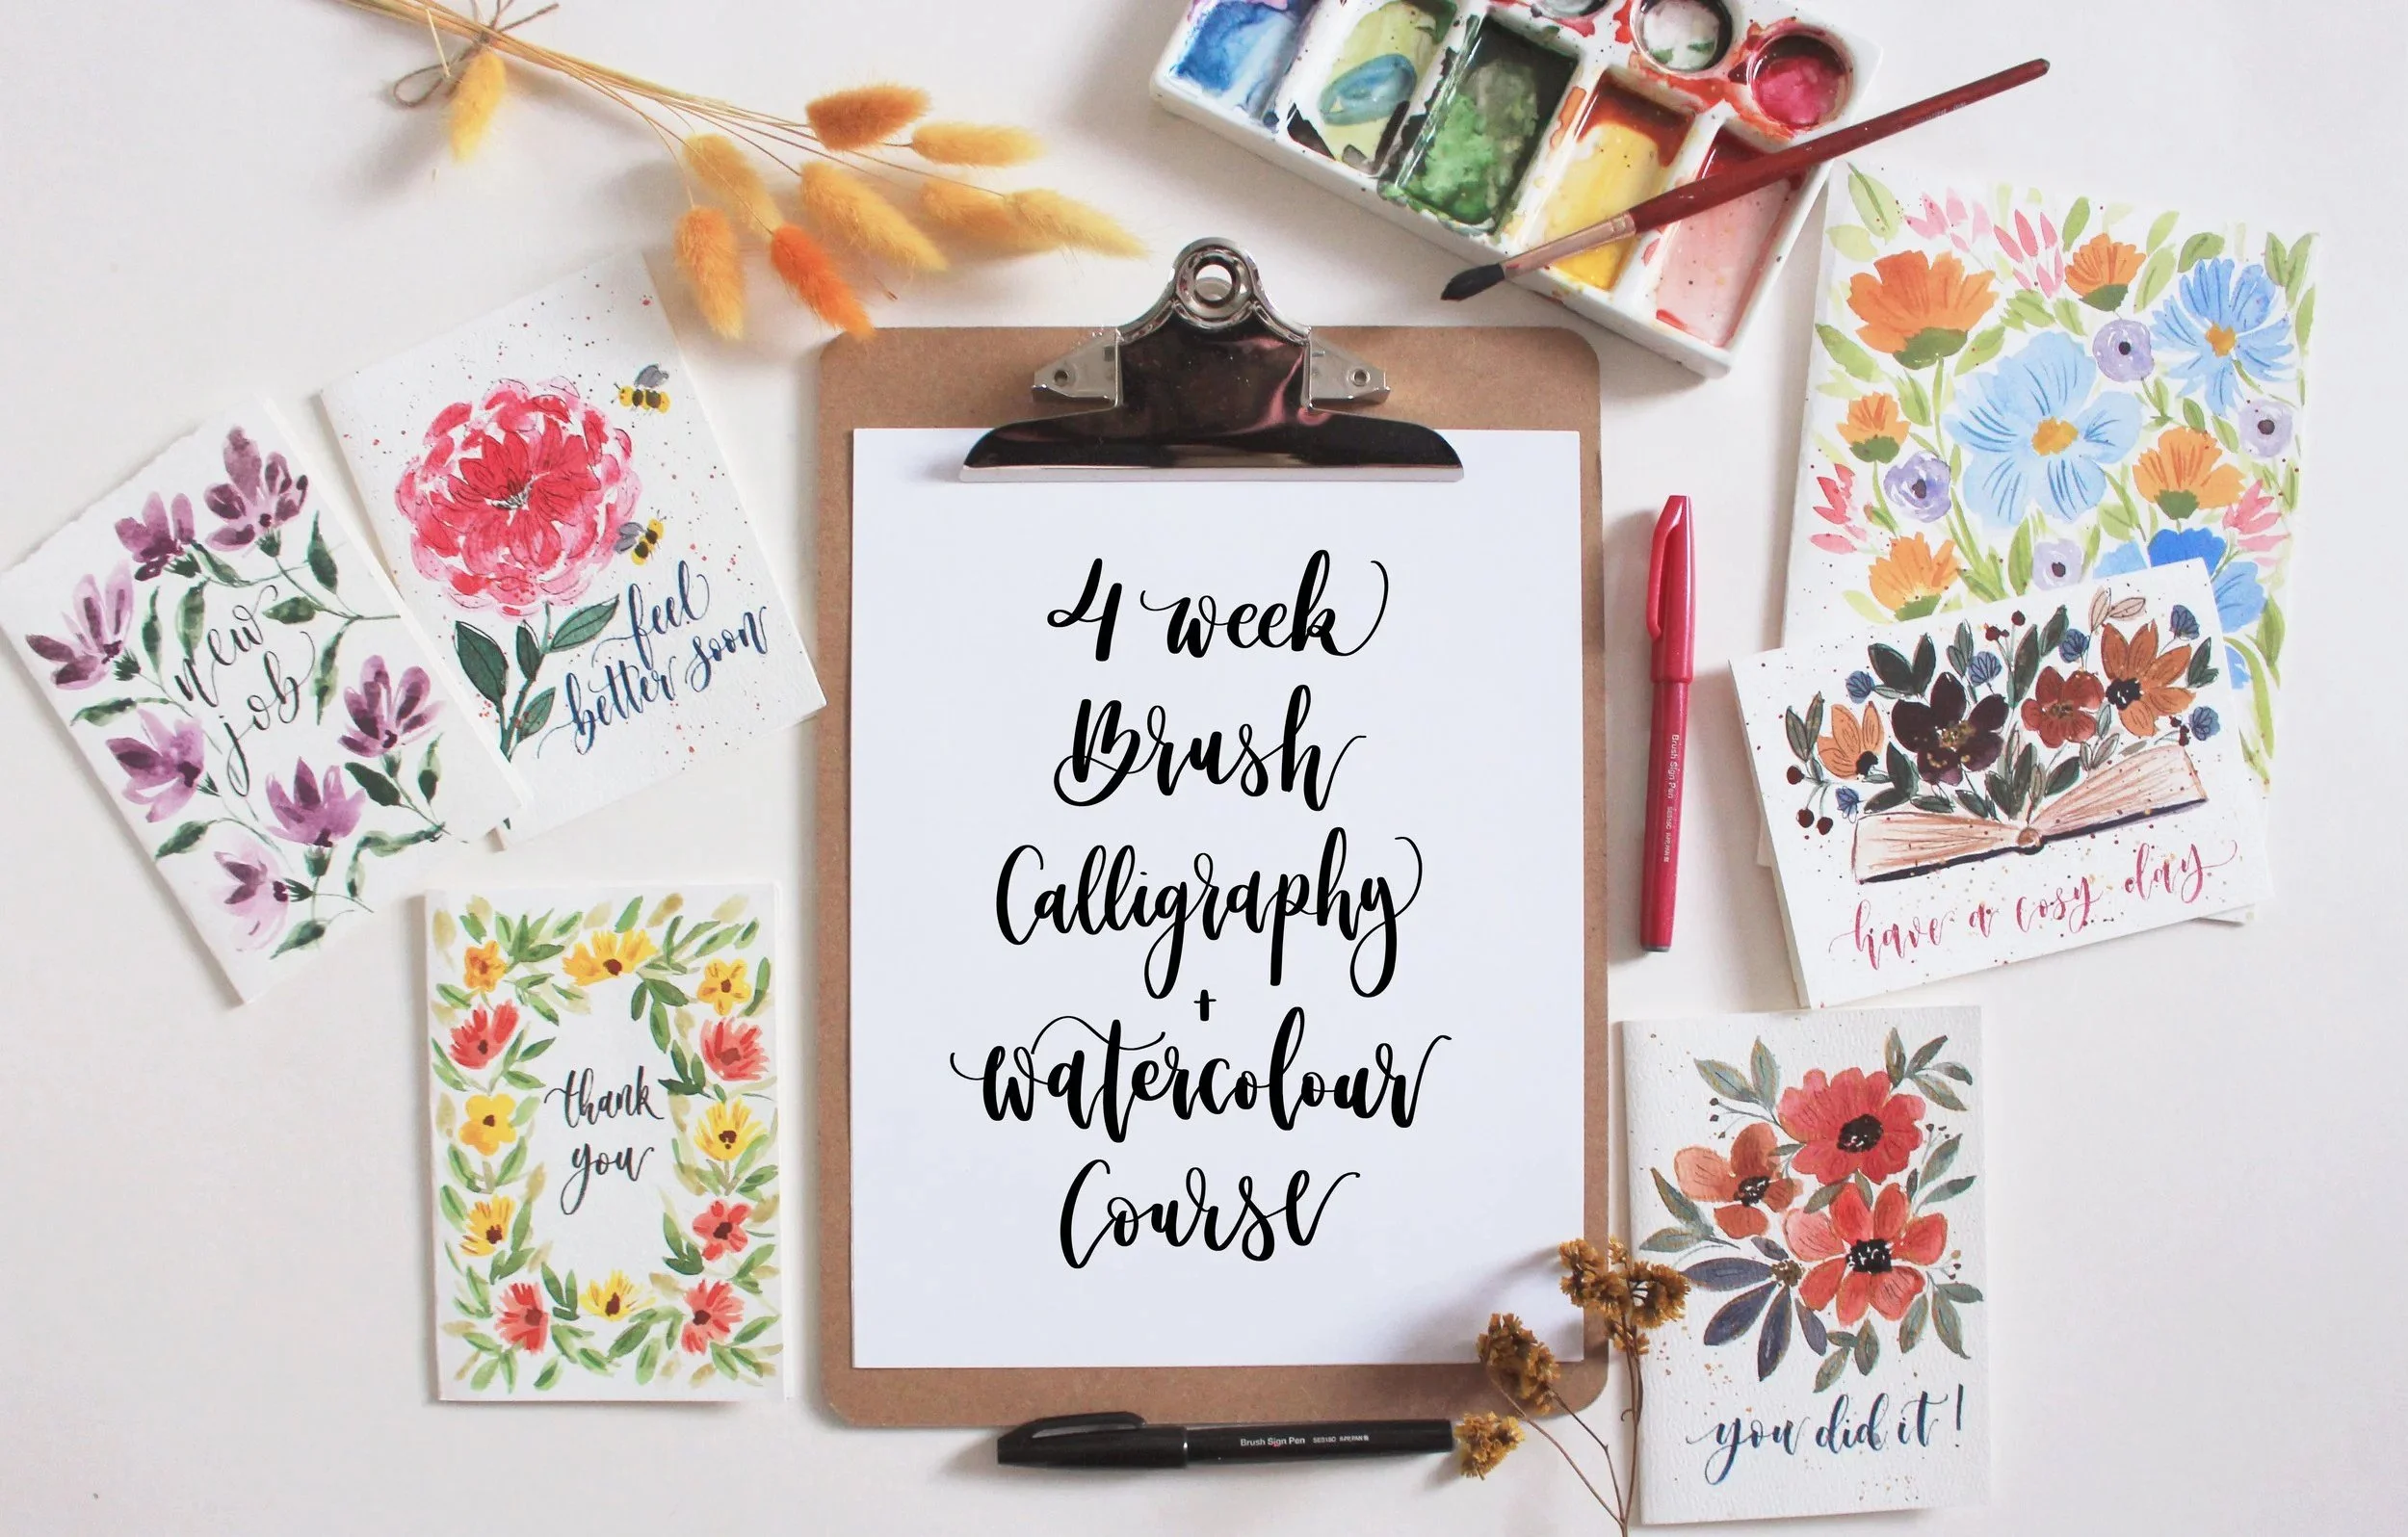 4 week
Brush
Calligraphy
+
watercolour
Course
new
job
feel
better soon
thank
you
have a cosy day
you did it!
Brush Sign Pen
Brush Sign Pen SES15C JAPAN